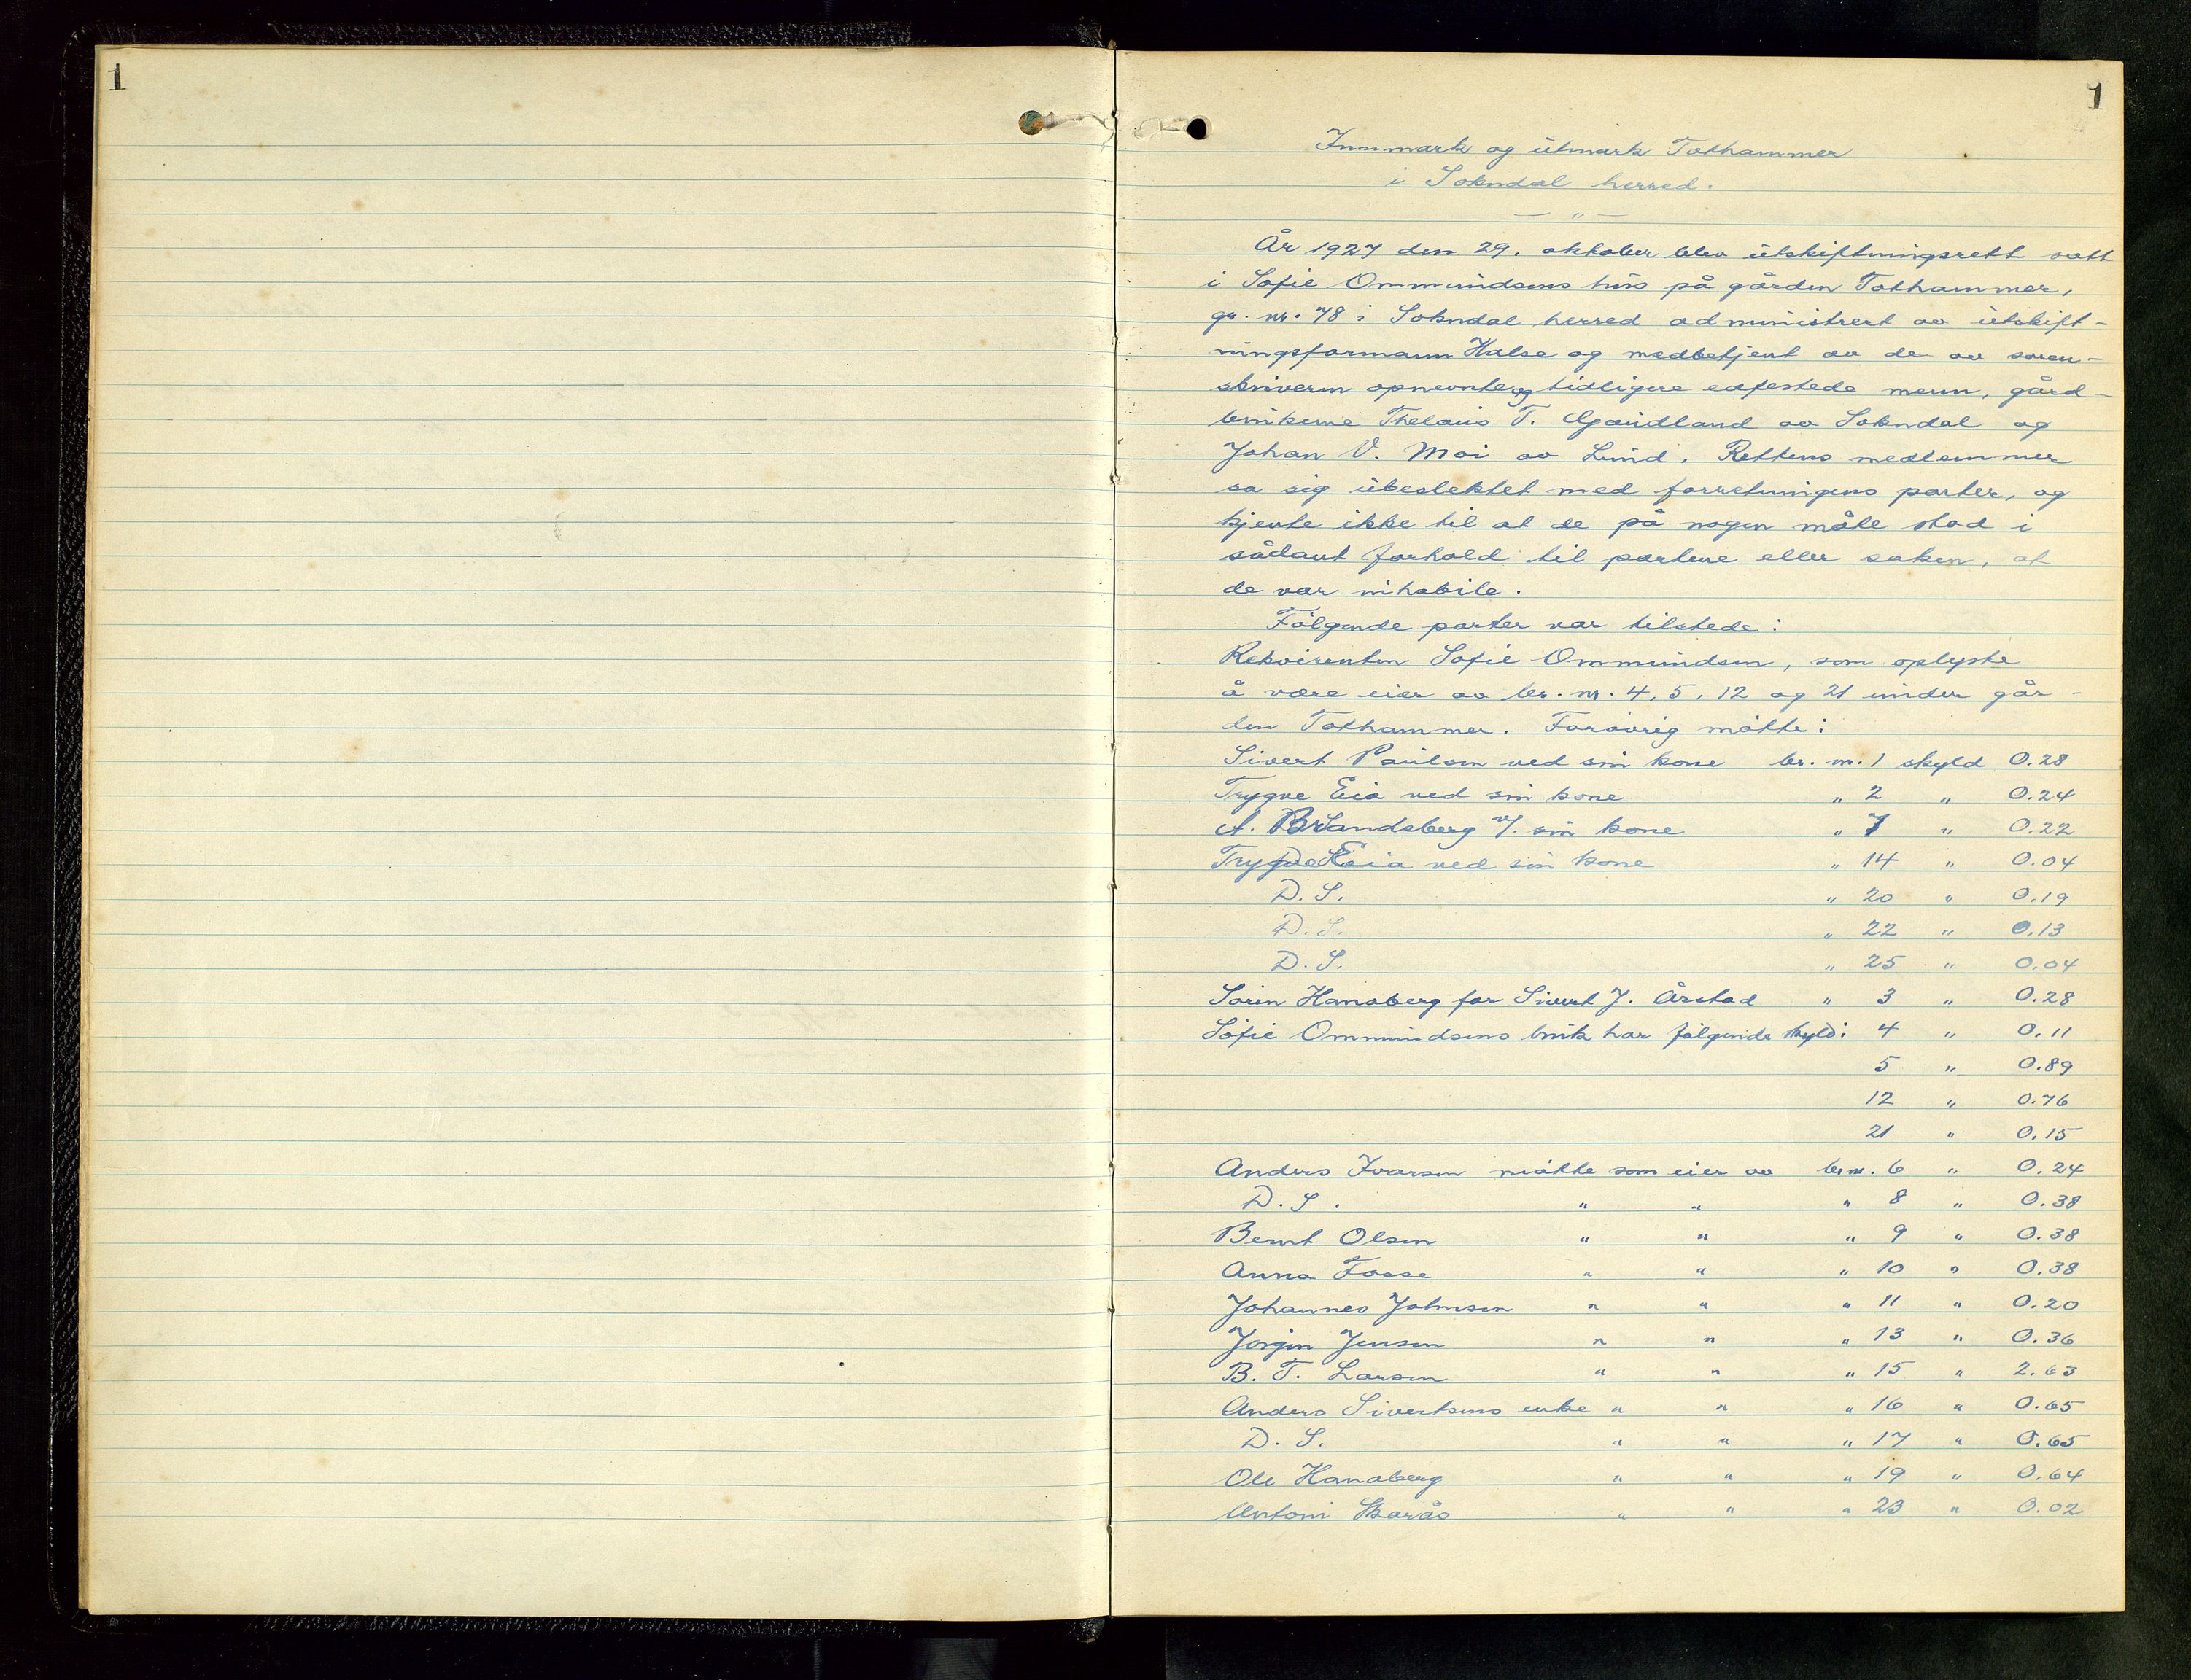 1
1
Innmark og utmark Tothammer
i Sokndal herred.
— " —
År 1927 den 29. oktober blev utskiftningsrett satt
i Sofie Ommundsens hus på gården Tothammer,
gr. nr. 78 i Sokndal herred administrert av utskift-
ningsformann Halse og medbetjent av de av soren-
skriveren opnevnte og tidligere edfestede menn, gård-
brukerne Thelaus T. Gaudland av Sokndal og
Johan V. Moi av Lund. Rettens medlemmer
sa sig ubeslektet med forretningens parter, og
kjente ikke til at de på nogen måte stod i
sådant forhold til partene eller saken, at
de var inhabile.
Følgende parter var tilstede:
Rekvirenten Sofie Ommundsen, som oplyste
å være eier av br. nr. 4, 5, 12 og 21 under går-
den Tothammer. Forøvrig møtte:
Sivert Paulsen ved sin kone br. nr. 1 skyld 0.28
Trygve Eia ved sin kone " 2 " 0.24
A. Br Sandsberg v/. sin kone " 7 " 0.22
Trygve Eia ved sin kone " 14 " 0.04
D. S. " 20 " 0.19
D. S. " 22 " 0.13
D. S. " 25 " 0.04
Sørin Hanaberg for Sivert J. Årstad " 3 " 0.28
Sofie Ommundsens bruk har følgende skyld: 4 " 0.11
5 " 0.89
12 " 0.76
21 " 0.15
Anders Ivarsen møtte som eier av br. nr. 6 " 0.24
D. S. " " " 8 " 0.38
Bernt Olsen " " " 9 " 0.38
Anna Fosse " " " 10 " 0.38
Johannes Johnsen " " " 11 " 0.20
Jørgin Jensen " " " 13 " 0.36
B. T. Larsen " " " 15 " 2.63
Anders Sivertsens enke " " " 16 " 0.65
D. S. " " " 17 " 0.65
Ole Hanaberg " " " 19 " 0.64
Antoni Skarås " " " 23 " 0.02